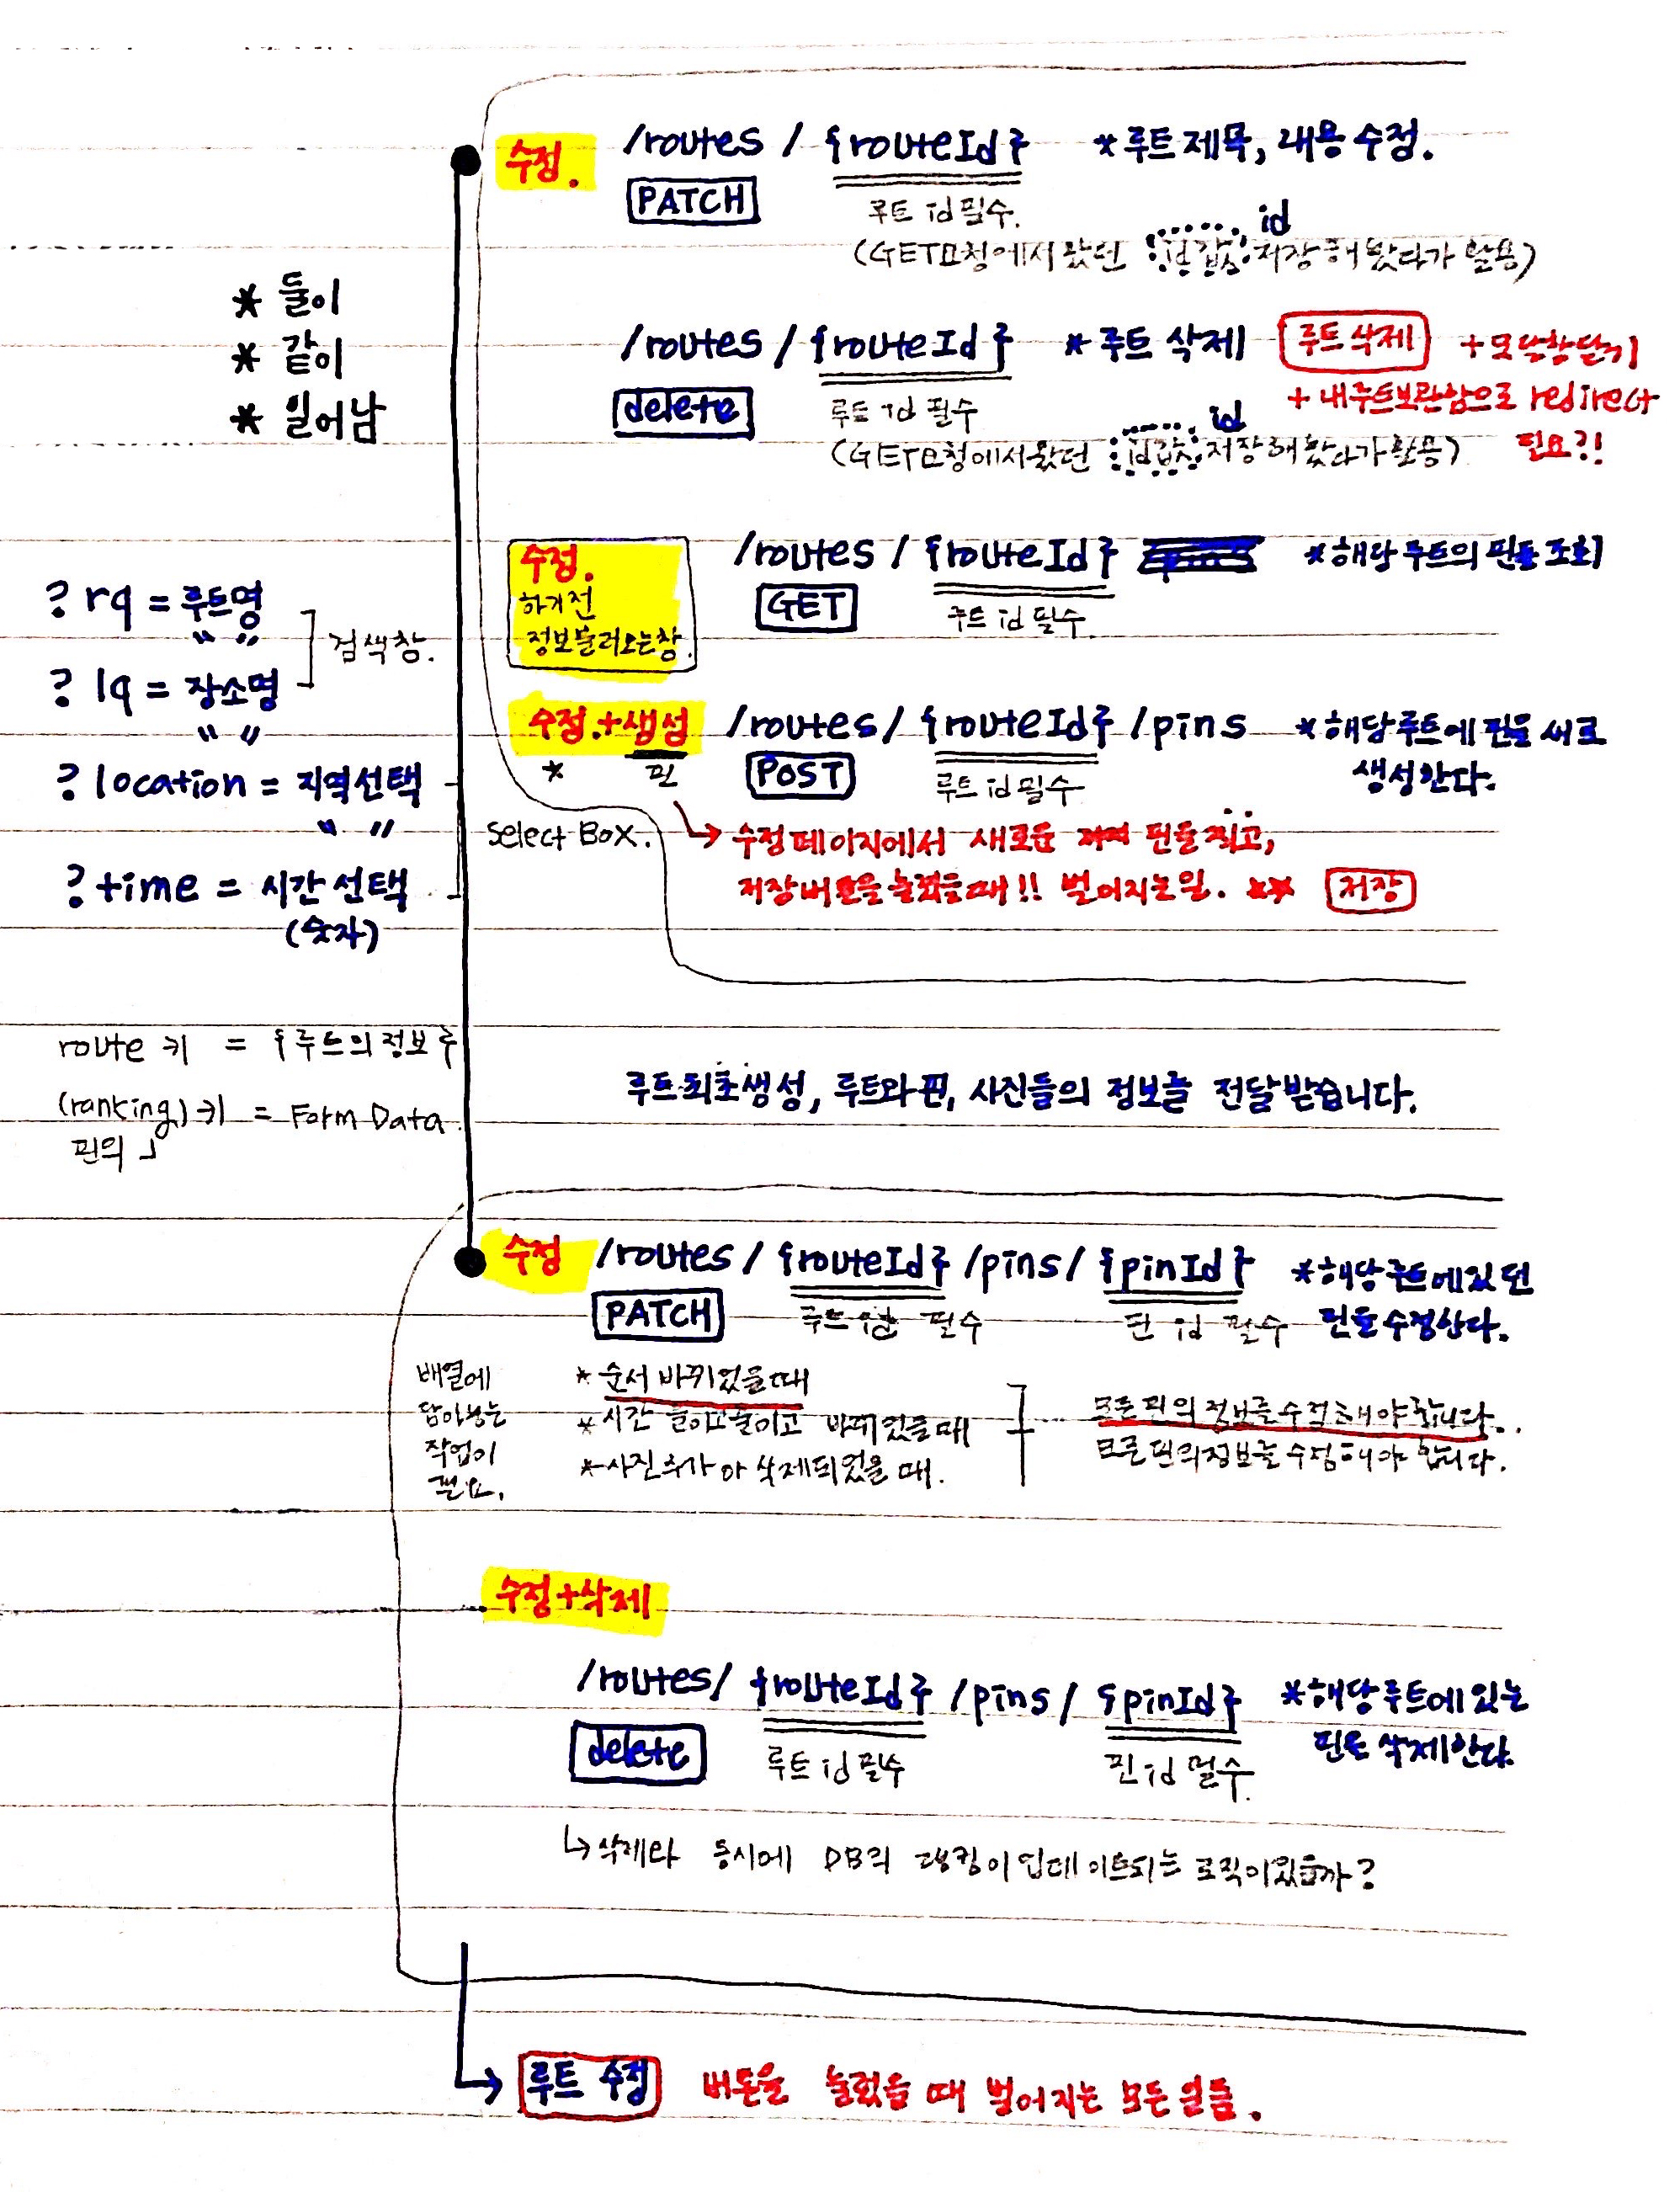 수정. /routes / {routeId} *루트 제목, 내용 수정.
PATCH 루트 id 필수.
id
(GET요청에서 왔던 id값 저장해 놨다가 활용)
* 둘이
* 같이
* 일어남
/routes / {routeId} * 루트 삭제 루트 삭제 + 모달창 닫기
delete 루트 id 필수 + 내루트보관함으로 redirect
id
(GET요청에서 왔던 id값 저장해 놨다가 활용) 필요?!
수정.
하기전
정보불러오는창.
/routes / {routeId} *해당 루트의 핀들 조회
GET 루트 id 필수.
? rq = 루트명
" "
? lq = 장소명
" "
검색창.
? location = 지역선택
" "
? time = 시간 선택
(숫자)
Select Box.
수정.+생성 /routes/ {routeId} /pins *해당루트에 핀을 새로
* 핀 POST 루트 id 필수 생성한다.
→ 수정페이지에서 새로운 핀들 찍고,
저장버튼을 눌렀을때!! 벌어지는일. ** 저장
route 키 = {루트의 정보}
(ranking)키 = Form Data.
핀의
루트 최초생성, 루트와 핀, 사진들의 정보를 전달받습니다.
수정 /routes / {routeId} /pins/ {pinId} *해당루트에있던
PATCH 루트 id 필수 핀 id 필수 핀을 수정한다.
배열에
담아놓는
작업이
필요.
* 순서 바뀌었을때
* 시간 바뀌었을때
* 사진추가 삭제되었을 때.
모든 핀의 정보를 수정해야합니다..
모든 핀의 정보를 수정해야 합니다.
수정+삭제
/routes/ {routeId} /pins/ {pinId} *해당루트에있는
delete 루트 id 필수 핀 id 필수. 핀을 삭제한다.
↳ 삭제와 동시에 DB의 랭킹이 업데이트되는 로직이있을까?
→ 루트 수정 버튼을 눌렀을 때 벌어지는 모든 일들.